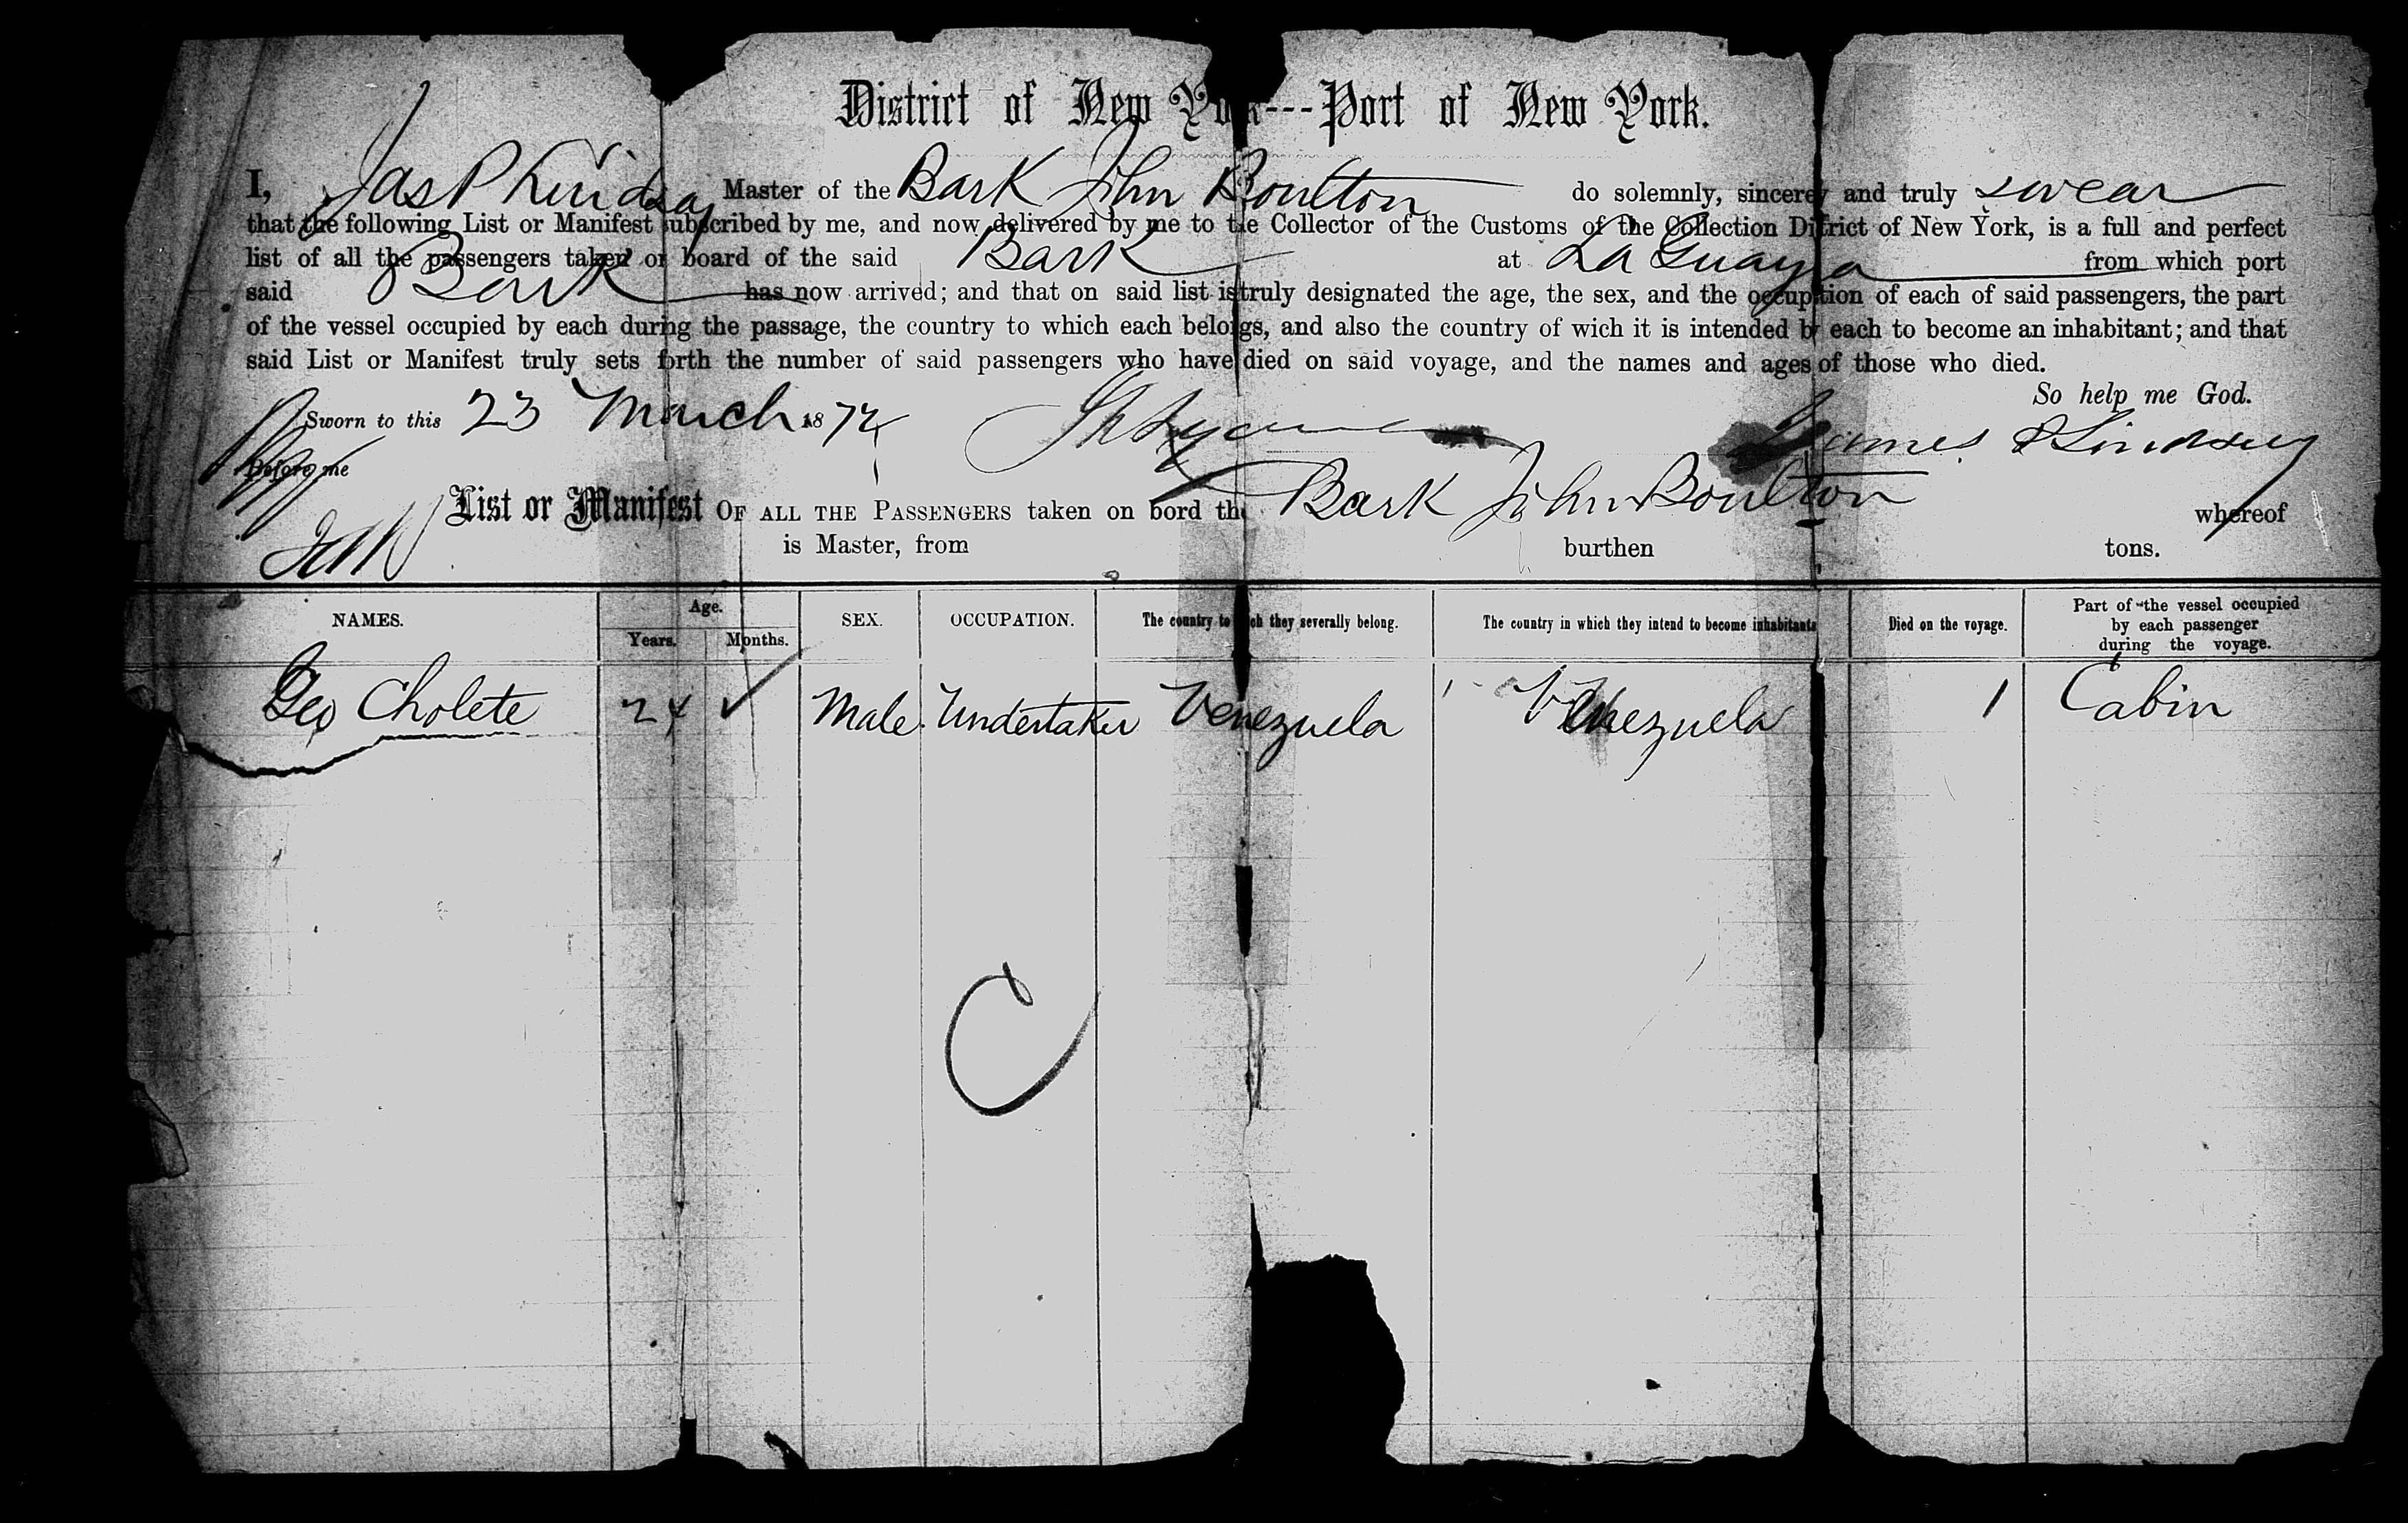 District of New York---Port of New York.
I, Jas P Lindsay Master of the Bark John Boulton do solemnly, sincerey and truly swear
that the following List or Manifest subscribed by me, and now delivered by me to the Collector of the Customs of the Collection District of New York, is a full and perfect
list of all the passengers taken on board of the said Bark at La Guayra from which port
said Bark has now arrived; and that on said list is truly designated the age, the sex, and the occuption of each of said passengers, the part
of the vessel occupied by each during the passage, the country to which each belongs, and also the country of wich it is intended by each to become an inhabitant; and that
said List or Manifest truly sets forth the number of said passengers who have died on said voyage, and the names and ages of those who died.
So help me God.
Sworn to this 23 March 1872
James P Lindsay
Before me
List or Manifest OF ALL THE PASSENGERS taken on bord the Bark John Boulton whereof
is Master, from burthen tons.
NAMES. Age. Years. Months. SEX. OCCUPATION. The country to which they severally belong. The country in which they intend to become inhabitants Died on the voyage. Part of the vessel occupied by each passenger during the voyage.
Geo Cholete 24 ✓ Male. Undertaker Venezuela Venezuela 1 Cabin
C